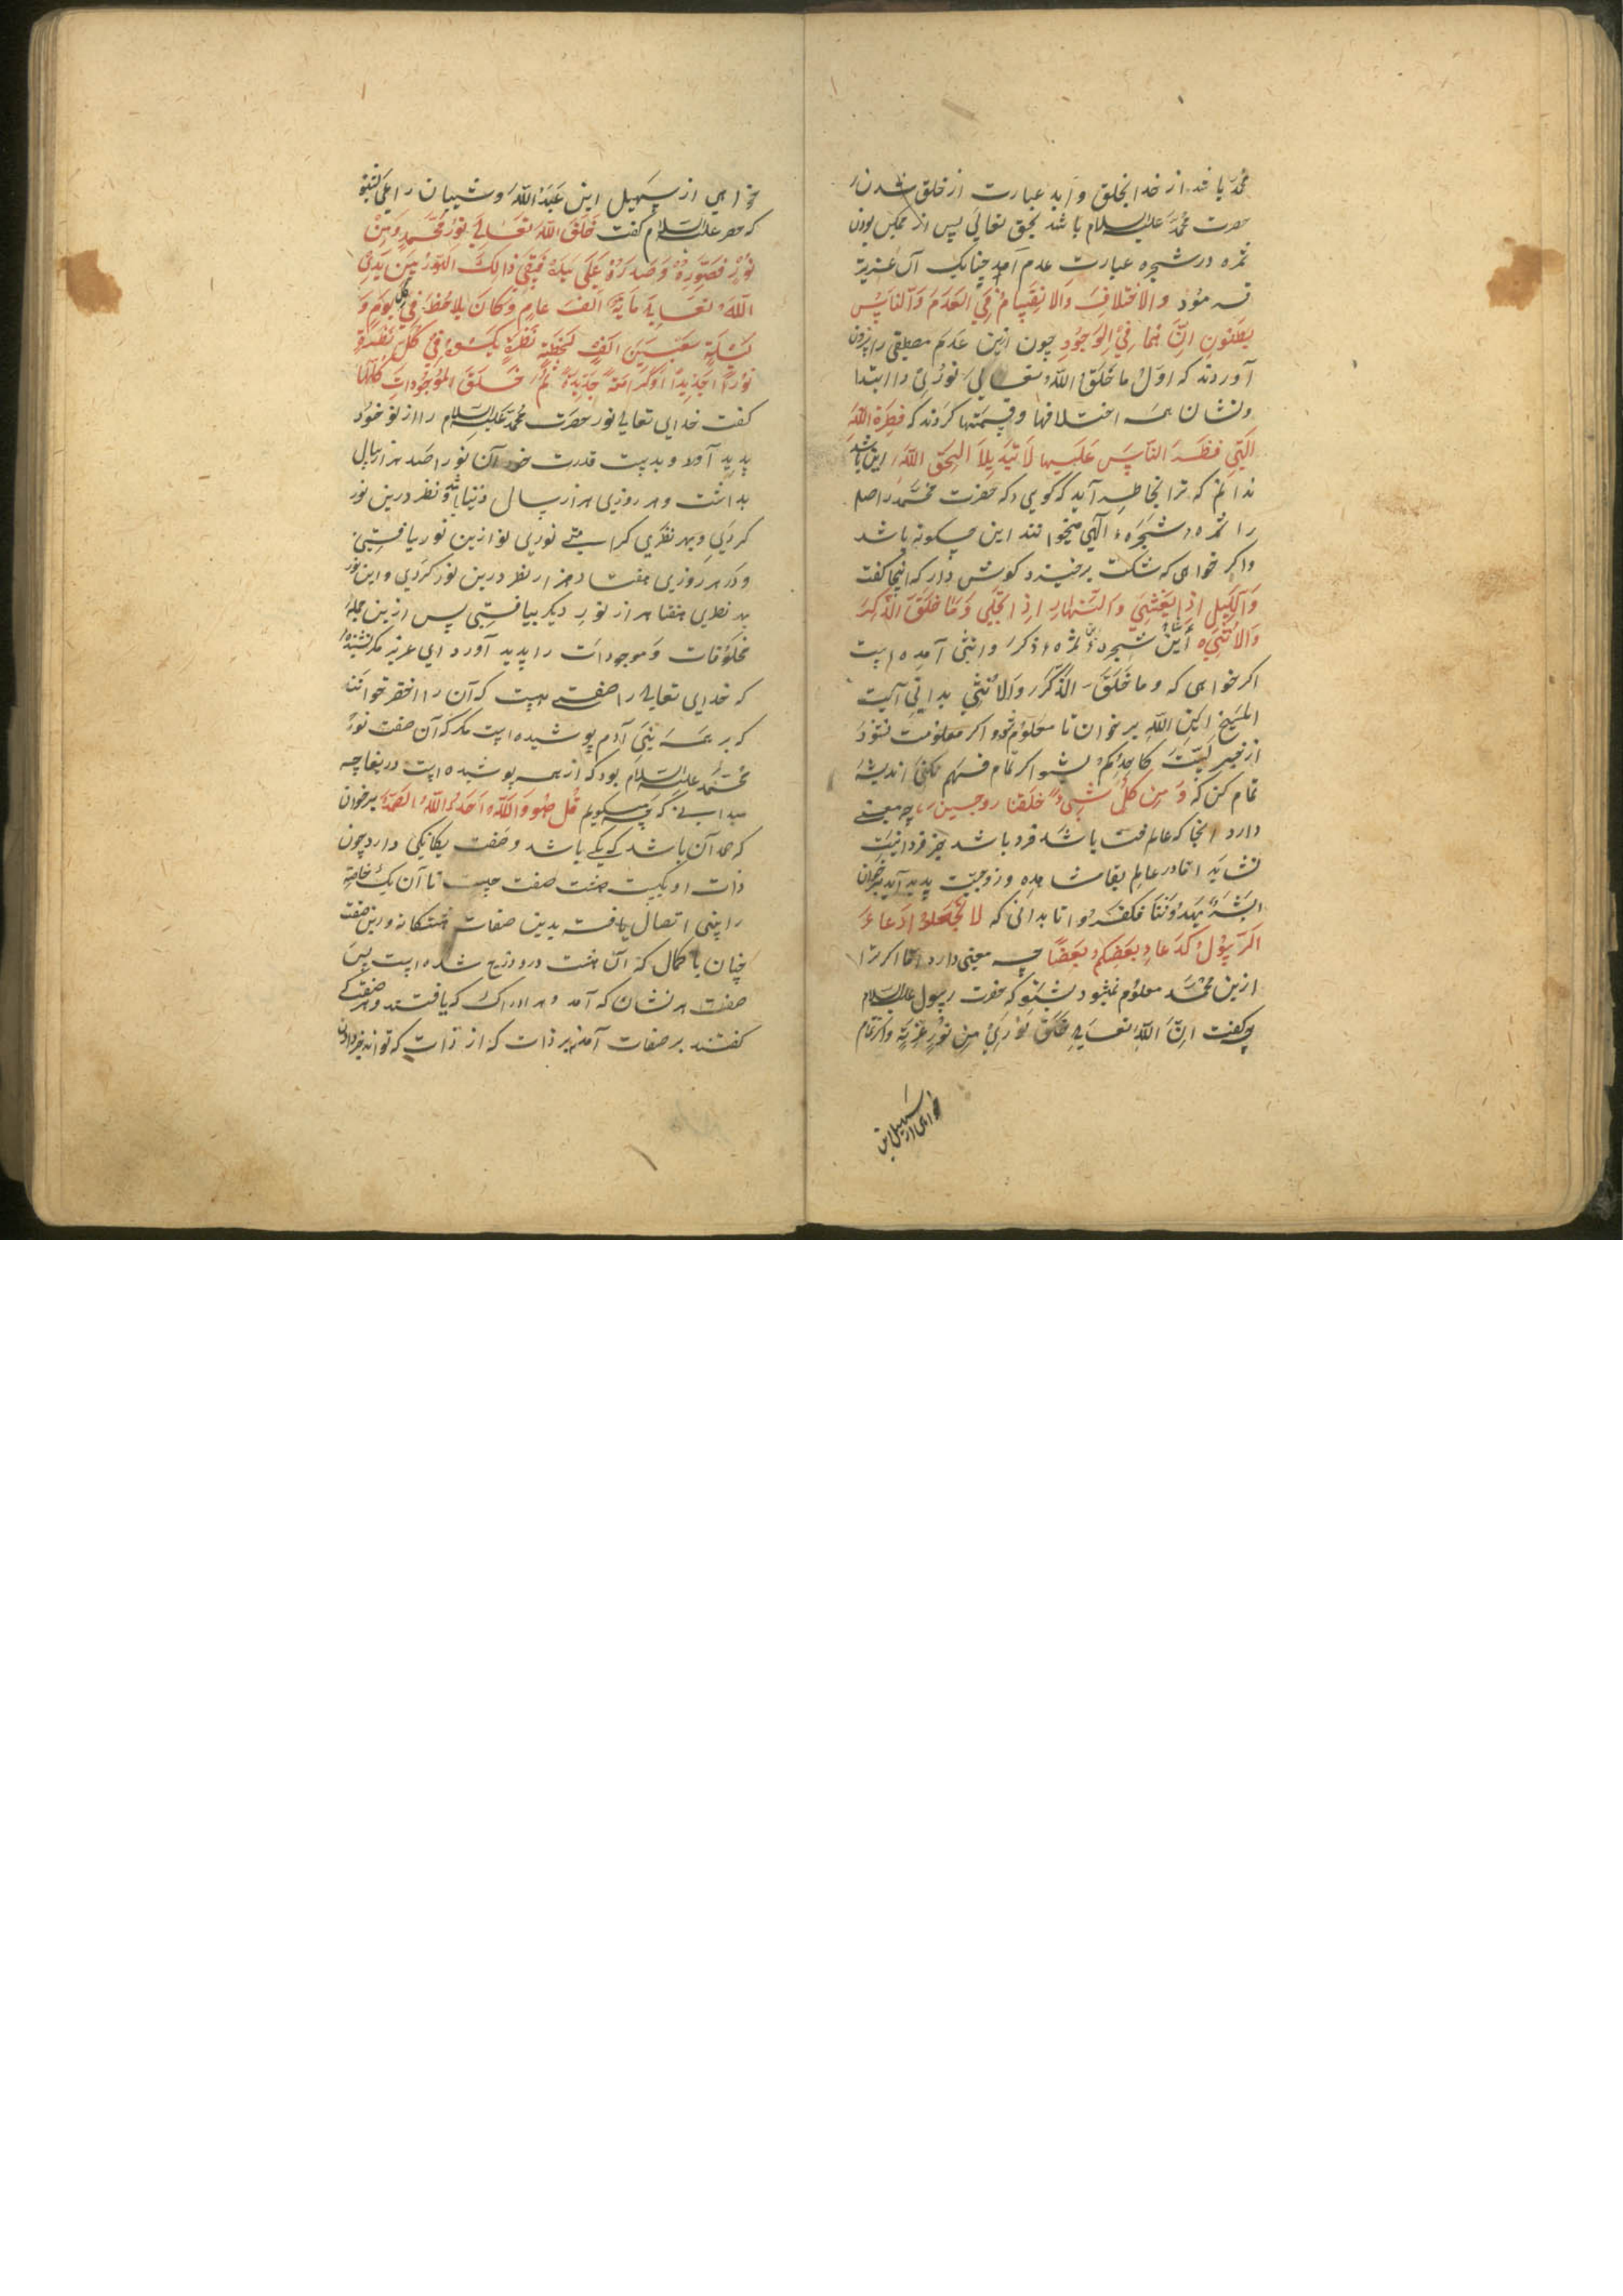 محمد باشد از خدا بخلق و ابد عبارت از خلق شدن
حضرت محمد علیه السلام باشد بحق تعالی پس از ممکن بودن
ثمره در شجره عبارت عدم آمد چنانک آن عزیز
فرمود والاختلاف والانقسام فی العدم والناس
یظنون ان هما فی الوجود چون ازین عدم مصطفی را بیرون
آوردند که اول ما خلق الله تعالی نوری دا ابتدا
ونشان همه اختلافها وقسمتها کردند که فطرة الله
التی فطر الناس علیها لا تبدیلا لخلق الله این باشد
ندانم که ترا بخاطر آید که کوی که حضرت محمد را اصل
را ثمره شجره الهی میخوانند این چکونه باشد
واکر خواهی که شکت برخیزد کوش دار که اینجا کفت
واللیل اذا یغشی والنهار اذا تجلی وما خلق الذکر
والانثی این شجره و ثمره ذکر وانثی آمده است
اکر خواهی که وما خلق الذکر والانثی بدانی آیت
المسیح ابن الله برخوان تا معلوم شود واکر معلومت نشود
از خیر لیت کاحدکم بشنو اکر تمام فهم نکنی اندیشه
تمام کن که ومن کل شیء خلقنا زوجین چه معنی
دارد آنجا که عالم فنت باشد فرد باشد جز فردانیت
نشاید اما در عالم بقا مشاهده وزوجیت پدید آید برخوان
ابشر یهدوننا فکفروا تا بدانی که لا تجعلوا دعاء
الرسول کدعاء بعضکم بعضا چه معنی دارد اما اکر ترا
ازین محمد معلوم نمیشود بشنو که حضرت رسول علیه السلام
کفت ان الله تعالی خلق نوری من نور عزته واکر تمام
خواهی از سهیل ابن
خواهی از سهیل ابن عبدالله و شیبان راعی بشنو
که خضر علیه السلام کفت خلق الله تعالی نور محمد من
نوره فصوره وصدره علی یده فبقی ذالک النور بین یدی
الله تعالی مایة الف عام وکان یلاحظه فی کل یوم و
لیلة سبعین الف لحظة نظرة یکسوه فی کل نظرة
نورا جدیدا وکرامة جدیدة ثم خلق الموجودات کلها
کفت خدای تعالی نور حضرت محمد علیه السلام را از نور خود
پدید آورد وبدست قدرت خود آن نور را صد هزار سال
بداشت وهر روزی هزار سال دنیا باشد ونظر درین نور
کردی وبهر نظری کرامتی نوری نو ازین نور یافتی
ودر هر روزی هفتاد هزار نظر درین نور کردی واین نور
بهر نظری هفتاد هزار نور دیکر بیافتی پس ازین جمله
مخلوقات وموجودات را پدید آورد ای عزیز مکر نشنیده
که خدای تعالی را صفتی هست که آن را اخص خوانند
که بر همه بنی آدم پوشیده است مکر که آن صفت نور
محمد علیه السلام بود که از همه پوشیده است دریغا چه
میدانی که چه میکویم قل هو الله احد الله الصمد برخوان
که احد آن باشد که یکی باشد وصفت یکانکی دارد چون
ذات او یکیست هشت صفت چیست تا آن یک خاصه
را یعنی اتصال یافت بدین صفات هشتکانه ورین صفت
چنان با کمال که آن هشت درو درج شده است پس
صفت هر نشان که آمد وهر ادراک که یافتند وهر صفتی که
کفتند بر صفات آمد نه بر ذات که از ذات که تواند خبر دادن